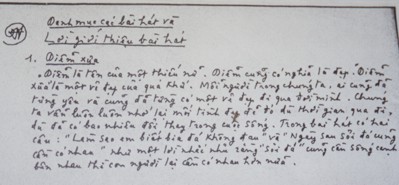 Danh mục các bài hát và
Lời giới thiệu bài hát
1. Diễm xưa
"Diễm là tên của một thiếu nữ. Diễm cũng có nghĩa là đẹp. Diễm
xưa là một vẻ đẹp của quá khứ. Mỗi người trong chúng ta, ai cũng đã
từng yêu và cũng đã từng có một vẻ đẹp đi qua đời mình. Chúng
ta vẫn luôn luôn nhớ lại mối tình đẹp đó dù thời gian qua đi,
dù đã có bao nhiêu đổi thay trong cuộc sống. Trong bài hát có hai
câu: "Làm sao em biết bia đá không đau" và "Ngày sau sỏi đá cũng
cần có nhau" như một lời nhắc nhở rằng "sỏi đá" cũng cần sống cạnh
bên nhau thì con người lại cần có nhau hơn nữa.